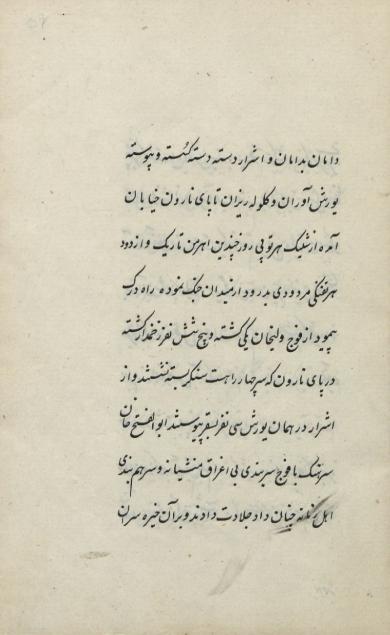 دامان بدامان و اشرار دسته دسته گسسته و پیوسته
یورش آوران و کلوله ریزان تا پای نارون خیابان
آمده از شلیک هر توپی روز چندین اهرمن تاریک و از دود
هر تفنگی مردودی بدرود از میدان جنک نموده راه درک
پیمود از فوج ولیخان یکی کشته و پنج شش نفر زخمدار کشته
در پای نارون که سر چهار راهست سنکر بسته نشستند و از
اشرار در همان یورش سی نفر بسقر پیوستند ابوالفتح خان
سرهنک با فوج سربندی بی اغراق منشیانه و سرهم بندی
اهل زمانه چنان داد جلادت دادند و بر آن خیره سران